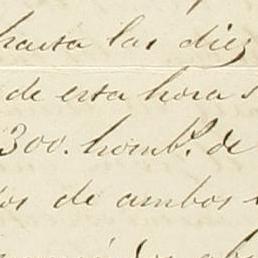 hasta las diez
de esta hora s
300. homb.s de
os de ambos